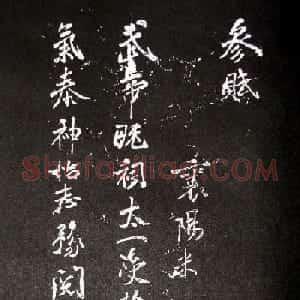 參賦
襄陽米
武帝既祠太一
氣泰神怡志豫閱
Shufaziliao.com